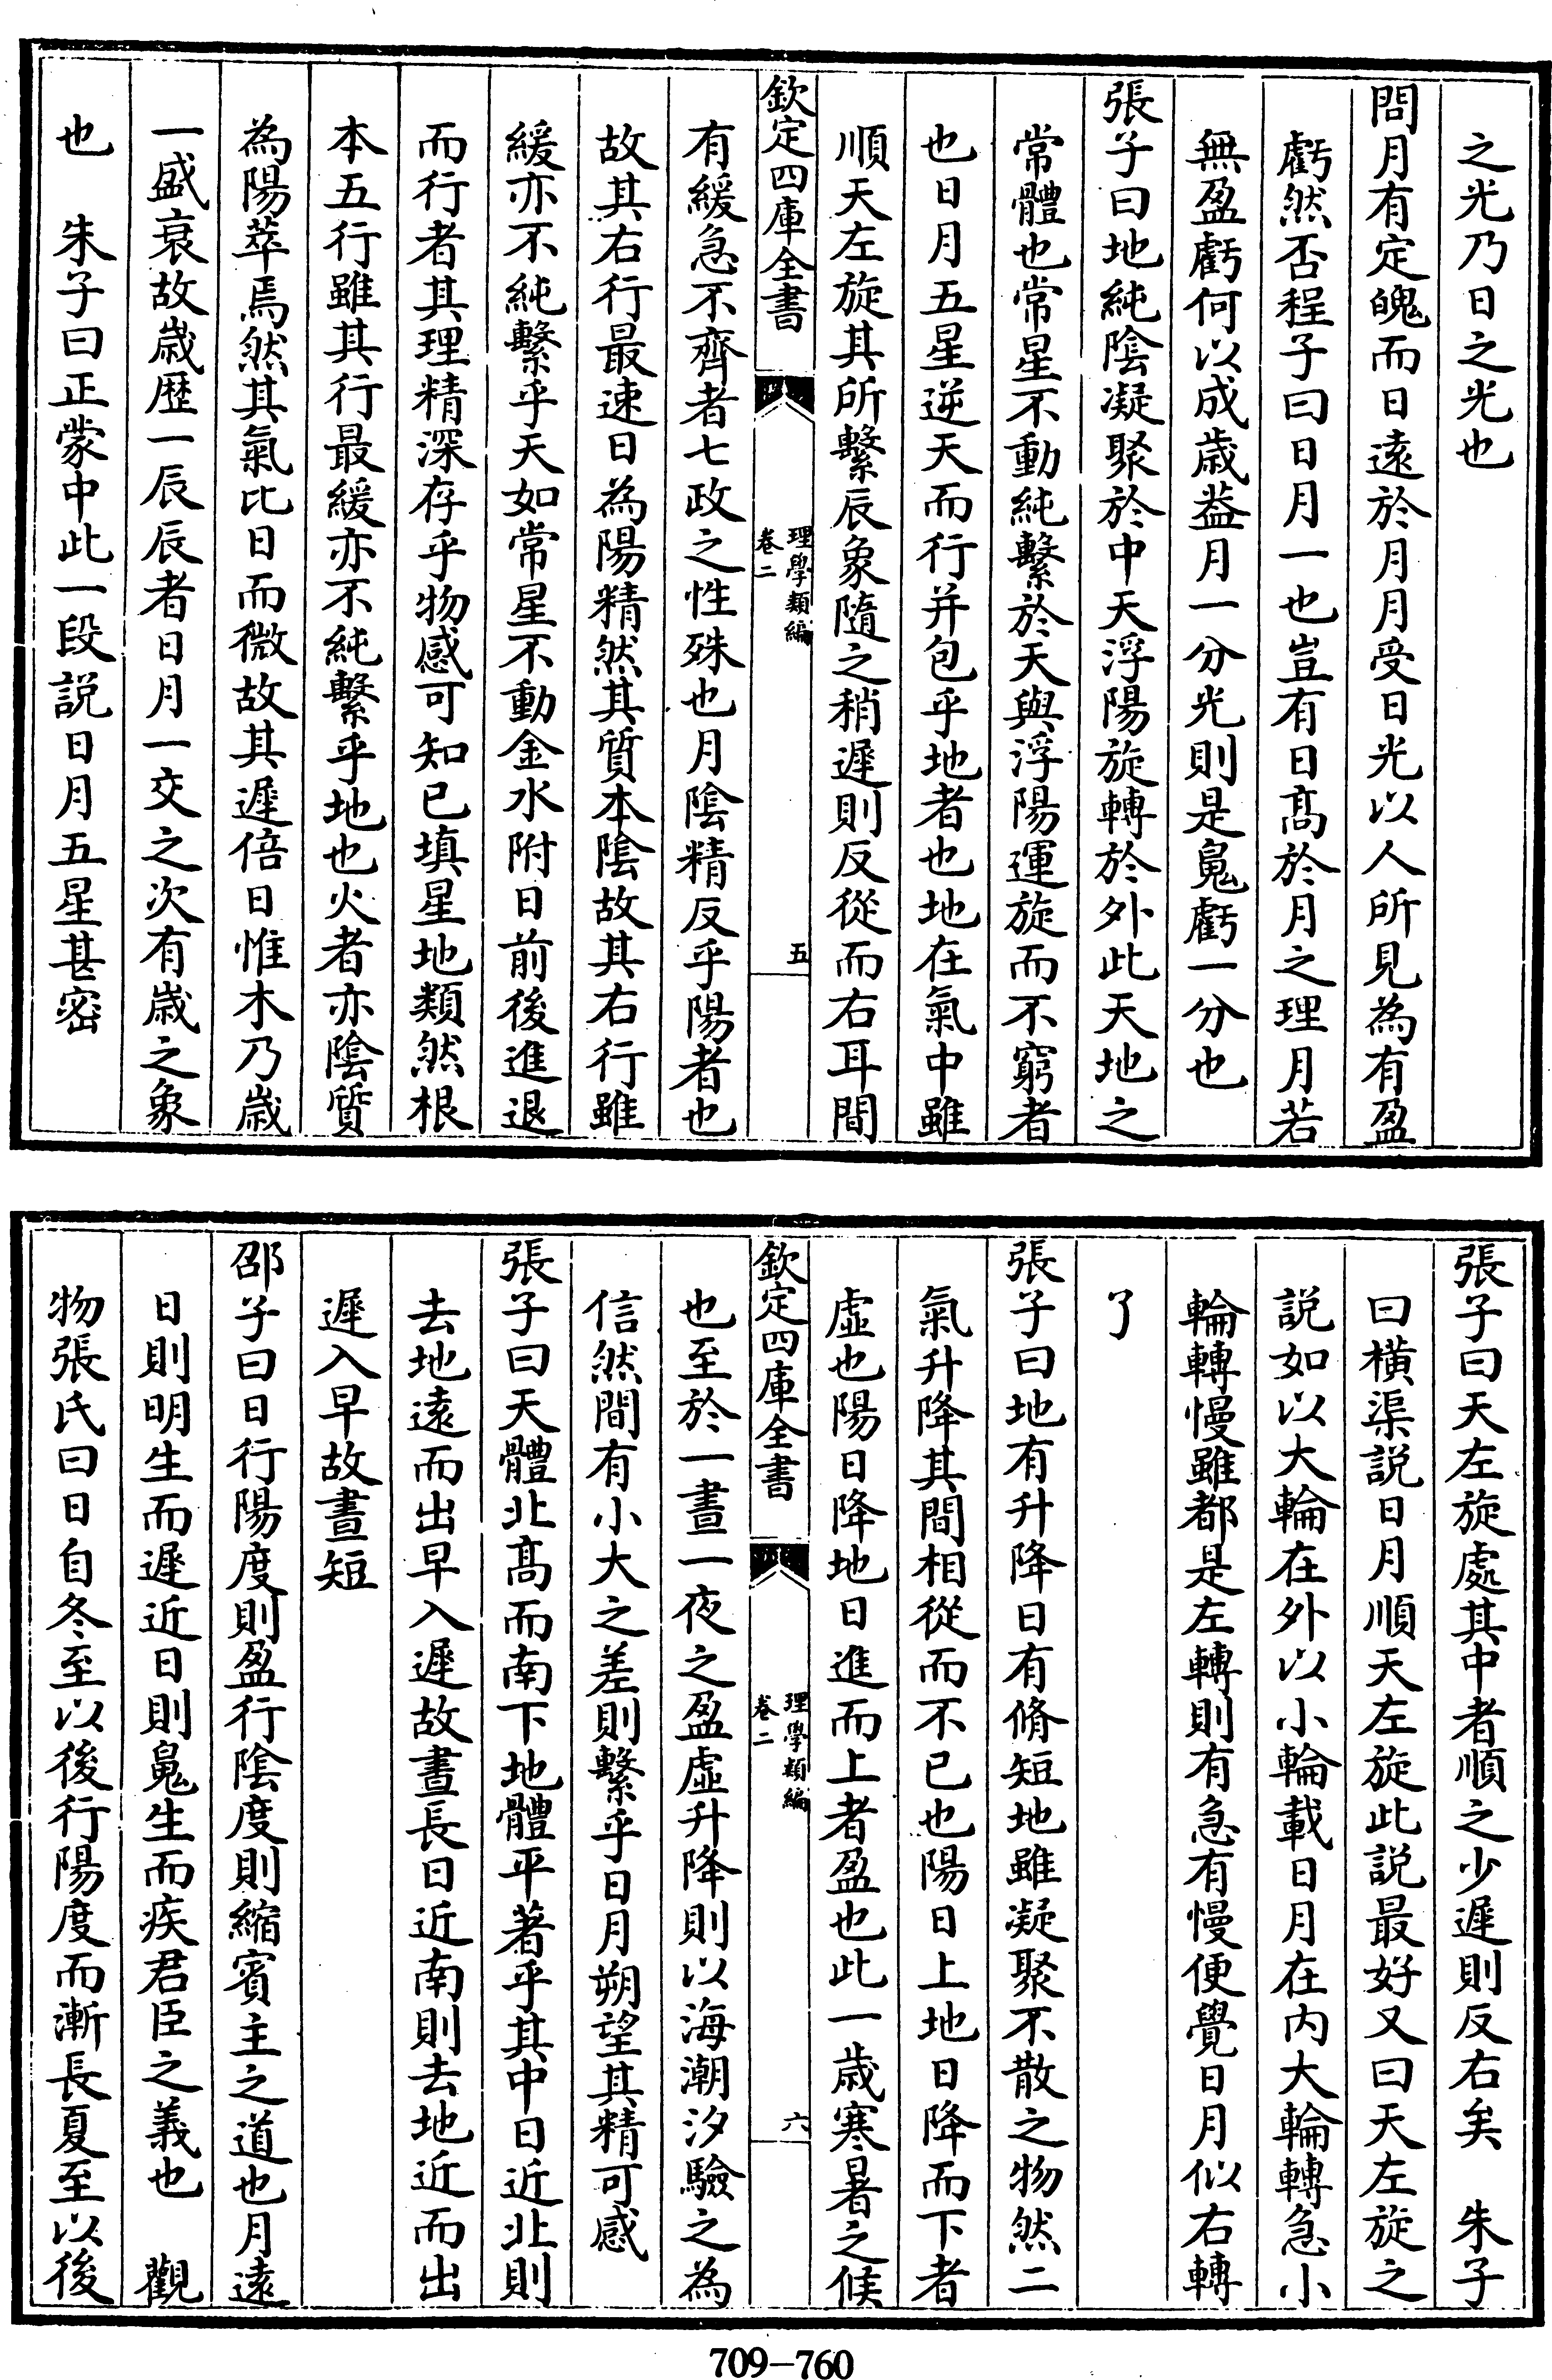 之光乃日之光也
問月有定魄而日遠於月月受日光以人所見為有盈
虧然否程子曰日月一也豈有日髙於月之理月若
無盈虧何以成歳葢月一分光則是䰟虧一分也
張子曰地純隂凝聚於中天浮陽旋轉於外此天地之
常體也常星不動純繫於天與浮陽運旋而不窮者
也日月五星逆天而行并包乎地者也地在氣中雖
順天左旋其所繫辰象隨之稍遲則反從而右耳間
欽定四庫全書
理學類編
卷二
五
有緩急不齊者七政之性殊也月隂精反乎陽者也
故其右行最速日為陽精然其質本隂故其右行雖
緩亦不純繫乎天如常星不動金水附日前後進退
而行者其理精深存乎物感可知已填星地類然根
本五行雖其行最緩亦不純繫乎地也火者亦隂質
為陽萃焉然其氣比日而微故其遲倍日惟木乃歳
一盛衰故歳歴一辰辰者日月一交之次有歳之象
也　朱子曰正蒙中此一段説日月五星甚宻
張子曰天左旋處其中者順之少遲則反右矣　朱子
曰横渠説日月順天左旋此説最好又曰天左旋之
説如以大輪在外以小輪載日月在内大輪轉急小
輪轉慢雖都是左轉則有急有慢便覺日月似右轉
了
張子曰地有升降日有脩短地雖凝聚不散之物然二
氣升降其間相從而不已也陽日上地日降而下者
虚也陽日降地日進而上者盈也此一歳寒暑之候
欽定四庫全書
理學類編
卷二
六
也至於一晝一夜之盈虚升降則以海潮汐驗之為
信然間有小大之差則繫乎日月朔望其精可感
張子曰天體北髙而南下地體平著乎其中日近北則
去地遠而出早入遲故晝長日近南則去地近而出
遲入早故晝短
邵子曰日行陽度則盈行隂度則縮賓主之道也月遠
日則明生而遲近日則䰟生而疾君臣之義也　觀
物張氏曰日自冬至以後行陽度而漸長夏至以後
709—760